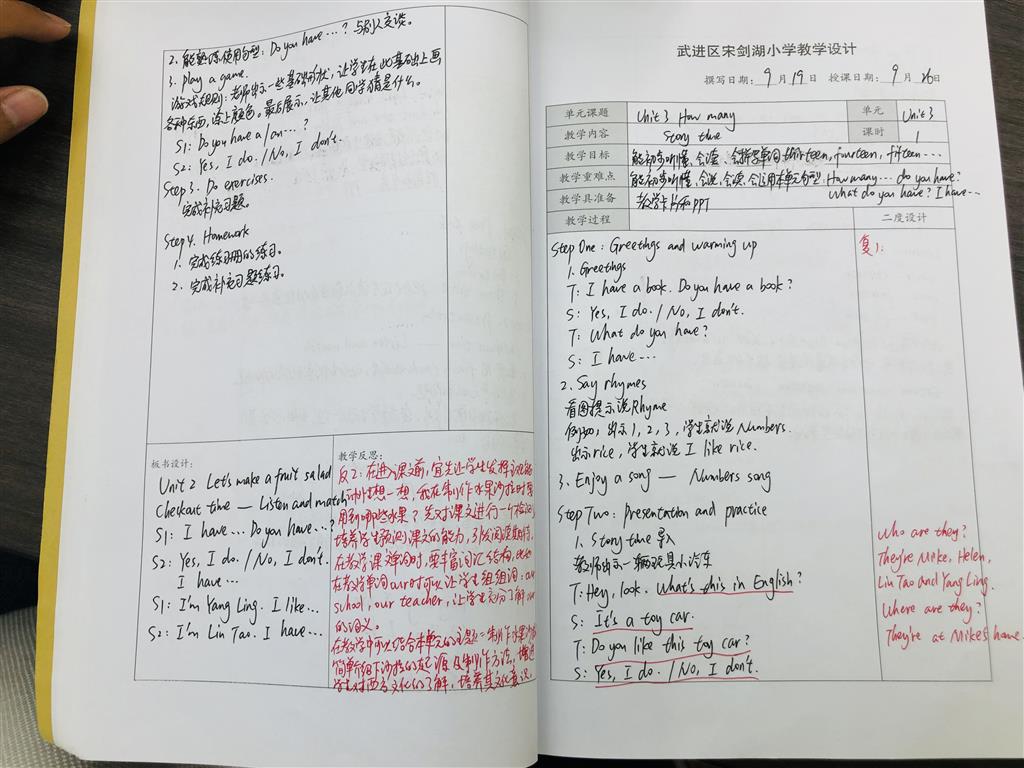 2. 能熟练使用句型: Do you have...? 与别人交谈。
3. play a game.
游戏规则: 老师出示一些基础形状, 让学生在此基础上画
各种东西, 涂上颜色。最后展示, 让其他同学猜是什么。
S1: Do you have a/an...?
S2: Yes, I do. / No, I don't.
Step 3. Do exercises.
完成补充习题。
Step 4. Homework
1. 完成练习册的练习。
2. 完成补充习题练习。
板书设计:
Unit 2 Let's make a fruit salad
Checkout time — Listen and match
S1: I have... Do you have...?
S2: Yes, I do. / No, I don't.
I have...
S1: I'm Yang Ling. I like...
S2: I'm Lin Tao. I have...
教学反思:
反2: 在进入课文前, 宜先让学生发挥主观能
想一想, 我在制作水果沙拉时要
用到哪些水果? 先对课文进行一个
培养学生预测课文的能力, 引发阅读期待。
在教学课文单词时, 要丰富词汇结构, 比如
在教学单词our时可以让学生组组词: our
school, our teacher, 让学生充分了解our
的词义。
在教学中可以结合本单元的主题: 制作水果沙拉
简单介绍下沙拉的起源及制作方法, 增进
学生对西方文化的了解, 培养其文化意识。
武进区宋剑湖小学教学设计
撰写日期: 9月19日 授课日期: 9月26日
单元课题 Unit 3 How many 单元 Unit 3
教学内容 Story time 课时 1
教学目标 能初步听懂, 会读, 会拼写单词thirteen, fourteen, fifteen...
教学重难点 能初步听懂, 会说, 会读, 会运用本单元句型: How many... do you have?
What do you have? I have...
教学具准备 教学卡片和PPT
教学过程 二度设计
Step One: Greetings and warming up
1. Greetings
T: I have a book. Do you have a book?
S: Yes, I do. / No, I don't.
T: What do you have?
S: I have...
2. Say rhymes
看图提示说Rhyme
例如, 出示1, 2, 3, 学生就说Numbers.
出示rice, 学生就说I like rice.
3. Enjoy a song — Numbers song
Step Two: Presentation and practice
1. Story time 导入
教师出示一辆玩具小汽车
T: Hey, look. What's this in English?
S: It's a toy car.
T: Do you like this toy car?
S: Yes, I do. / No, I don't.
复1:
Who are they?
They're Mike, Helen,
Liu Tao and Yang Ling.
Where are they?
They're at Mike's home.